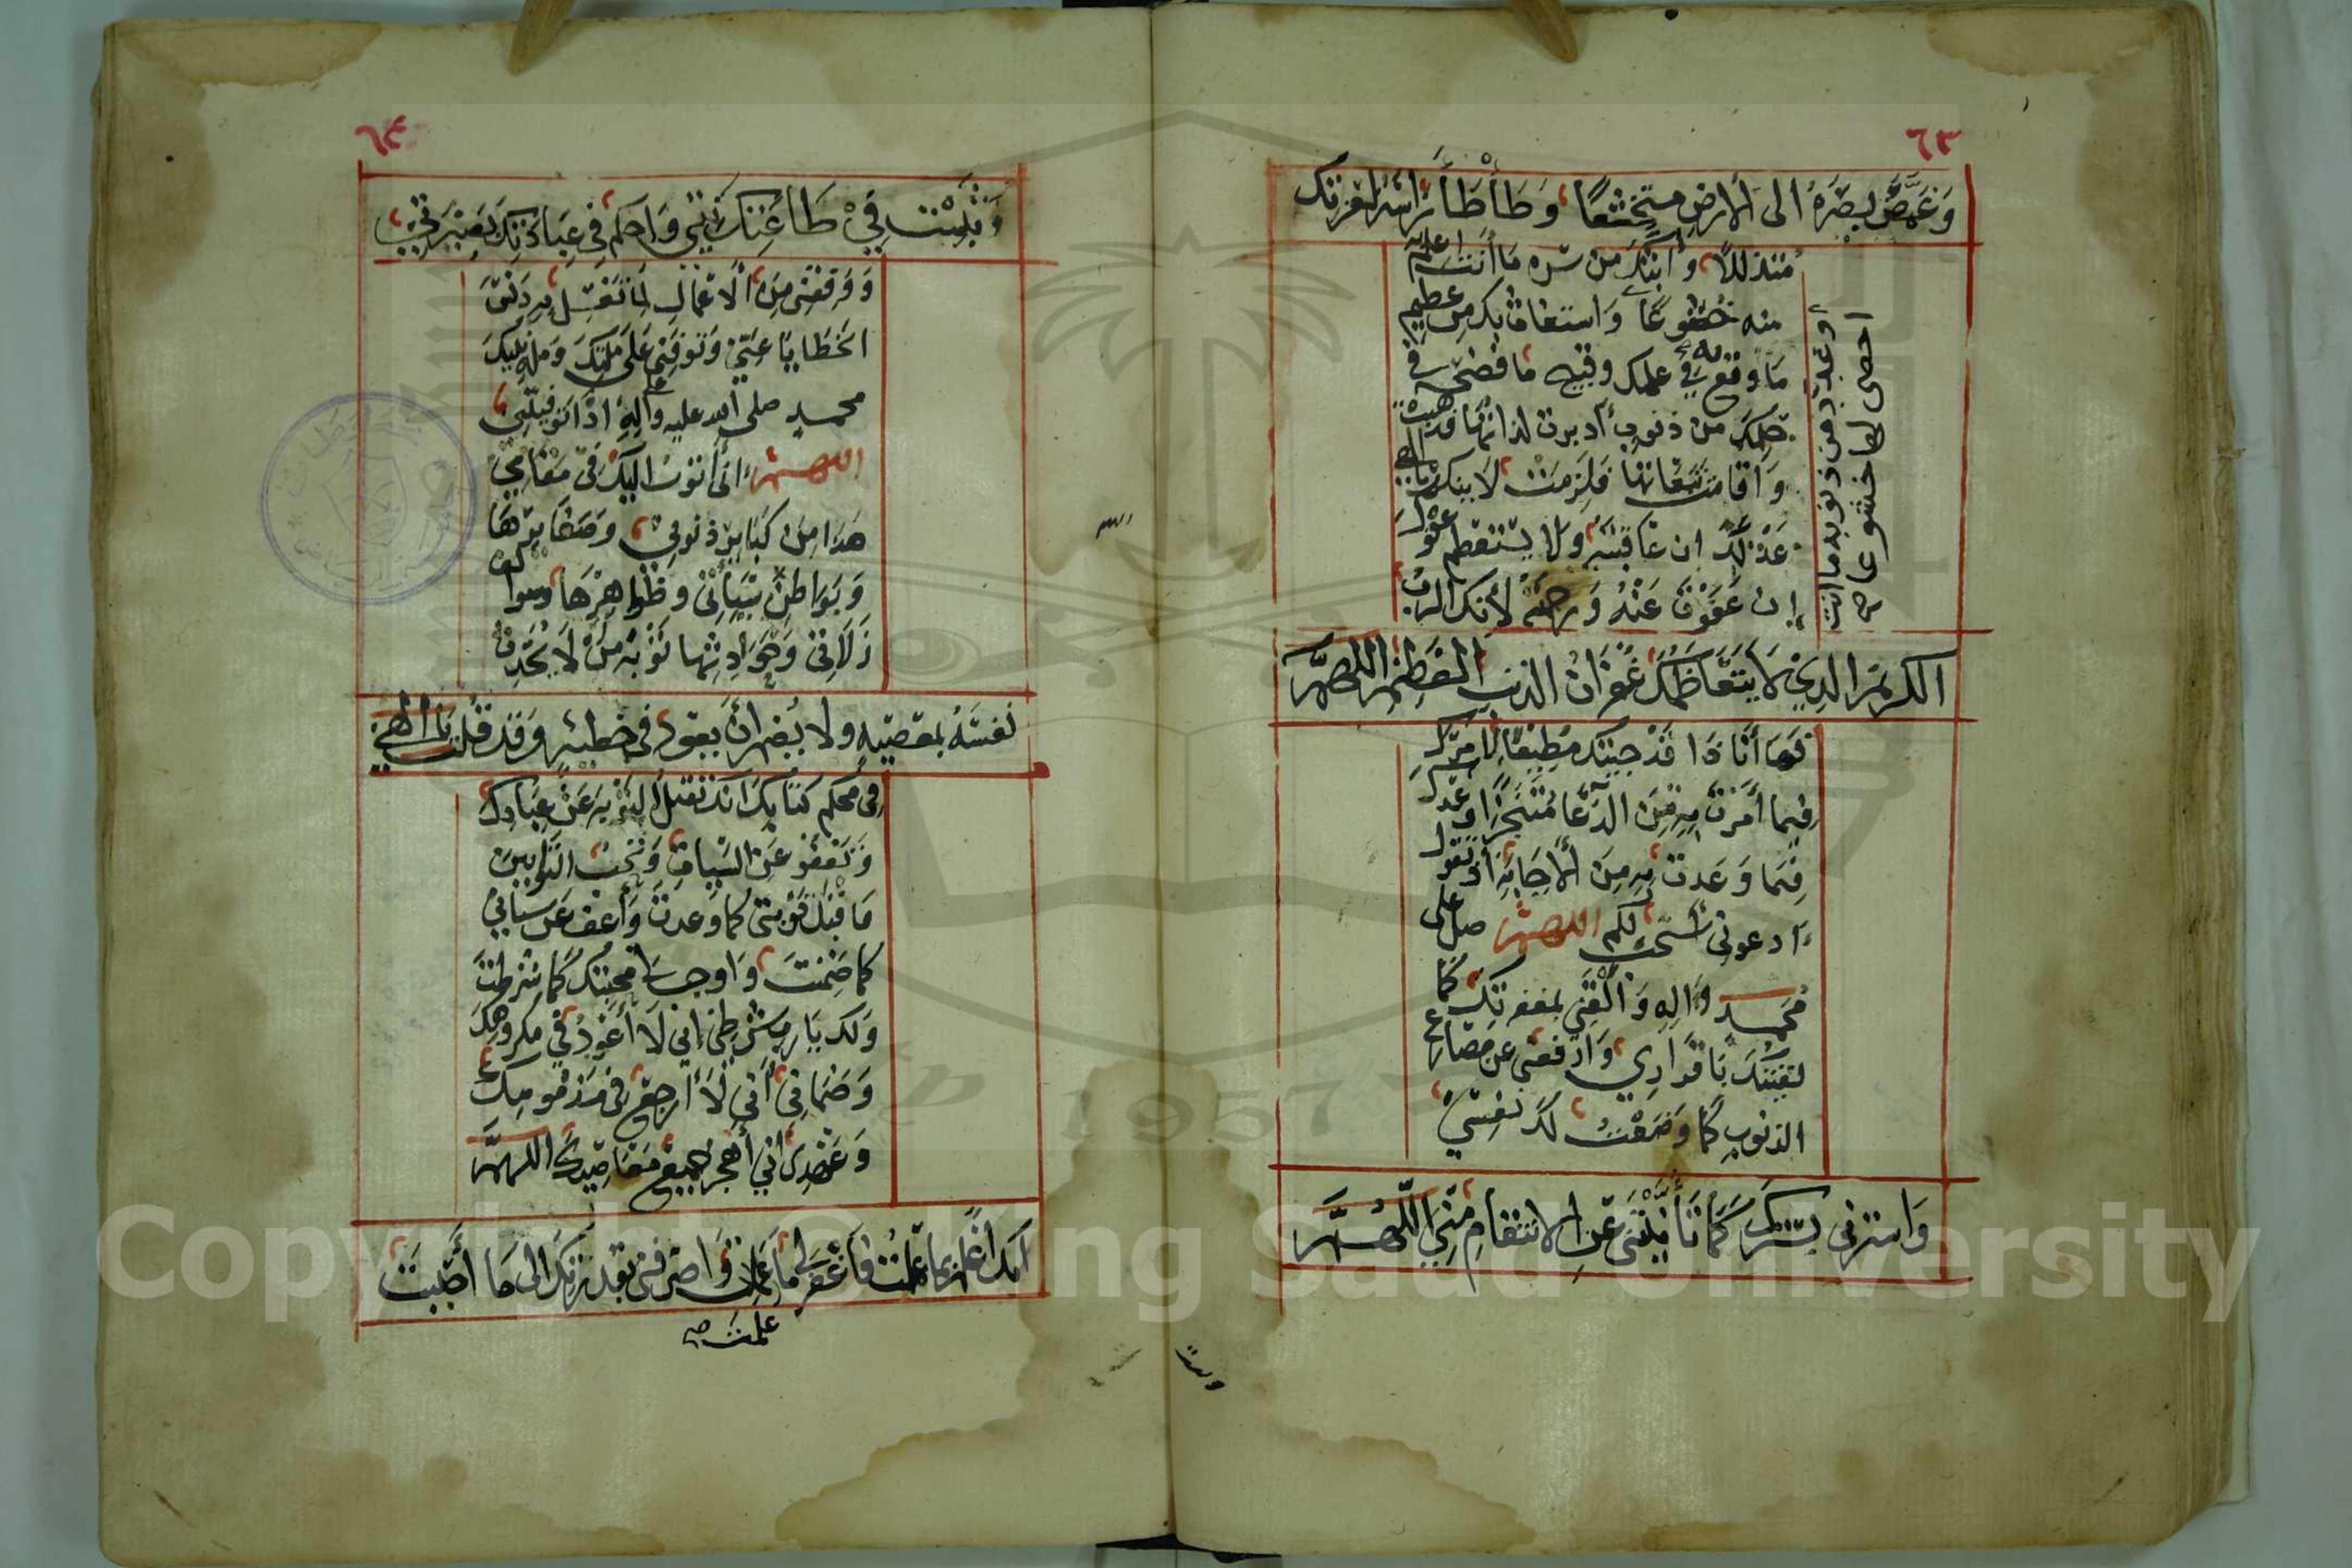 ٦٣
وَغَمَّضَ بصَرَهُ الى الارضِ متخشعًا وَطَأطَأَ رَاسَه لعزتك
متذللا وابثك من سره مَا أنت اعلم به
منه خضوعًا وَاستغاث بك مِن عظيم
مَا وقع به في علمك وقبيح ما فضحه في
حكمك من ذنوب أدبرت لذاتها فذهبت
وَأقامت تبعاتها فلزمت لا ينكر يا الهي
عَدْلَكَ ان عَاقبته وَلا يستعظم عفوك
إن عَفَوْتَ عَنْهُ وَرحمته لأنك الرب
وعدد من ذنوبه ما انت
احصى لها خشوعا ص
الكريم الذِي لَا يَتَعَاظَمُكَ غُفْرَانُ الذنب العَظِيم اللهم
فهَا أنَا ذَا قَدْ جيتك مُطِيعًا لأمرك
فِيمَا أمَرْتَ بِهِ مِنَ الدُّعَا مُتَنَجِّزًا وَعْدك
فِيمَا وَعَدتَ بِهِ مِنَ الاجَابَةِ اذ تقول
ادعونى أستجب لكم اللهم صل على
مُحمد وَالِهِ وَالْقَنِي بمغفرتك كما
لقيتك باقرارِي وَارفعني عن مصارع
الذنوبِ كمَا وَضَعْتُ لكَ نفسِي
وَاسترني بسترك كمَا تَأنَّيتَنِي عَنِ الانتقامِ مِنِّي اللهُمَّ
٦٤
وَثَبِّتْ فِي طَاعَتِكَ نِيَّتِي وَاحكم فِي عِبَادَتِكَ بَصِيرَتِي
وَوَفِّقني مِنَ الاعْمَالِ لمَا تَغْسِل بِهِ دَنَسَ
الخَطَايَا عَنّي وَتَوَفَّنِي عَلَى مِلَّتِكَ وَملة نبيك
محمدٍ صلى الله عليه وآلِهِ اذَا تَوَفَّيتَنِي
اللهم إنى أتوبُ اليكَ فى مَقَامِي
هَذا مِن كبَايِر ذنوبِي وَصَغَايِرِهَا
وَبَوَاطِنِ سَيِّأَتِى وظَوَاهِرِهَا وسوالف
زَلَاتِى وَحَوَادِثِهَا تَوْبَةَ مَن لَا يُحَدِّثُ
نَفسَهُ بمَعصيةٍ ولا يُضمِر أنْ يَعُود فى خطيئةٍ وَقَد قُلتَ يَا إلهي
فِى مُحكم كتَابكَ انك تقبل التوْبةَ عَنْ عِبَادِك
وَتَعْفُو عَنِ السَّيِّاتِ وَتحبُّ التوَّابِين
فَاقْبَل تَوْبتى كمَا وَعدتَ وَأعف عَن سَيِّاتِي
كمَا ضَمِنْتَ وَاوجب لى محبتك كَمَا شَرَطتَ
وَلكَ يَا رب شرطي إنِي لَا أعُودُ فِي مكروهك
وَضَمَانِي أنّي لَا أرجعُ فى مَذمُومِك
وَعَهْدِى انِي أهجر جميع مَعَاصِيكَ اللهمَّ
انك اعلم بما عملت فاغفر لى ما علمت وَاصرفنى بقدرتك الى مَا احببت
علمت ص